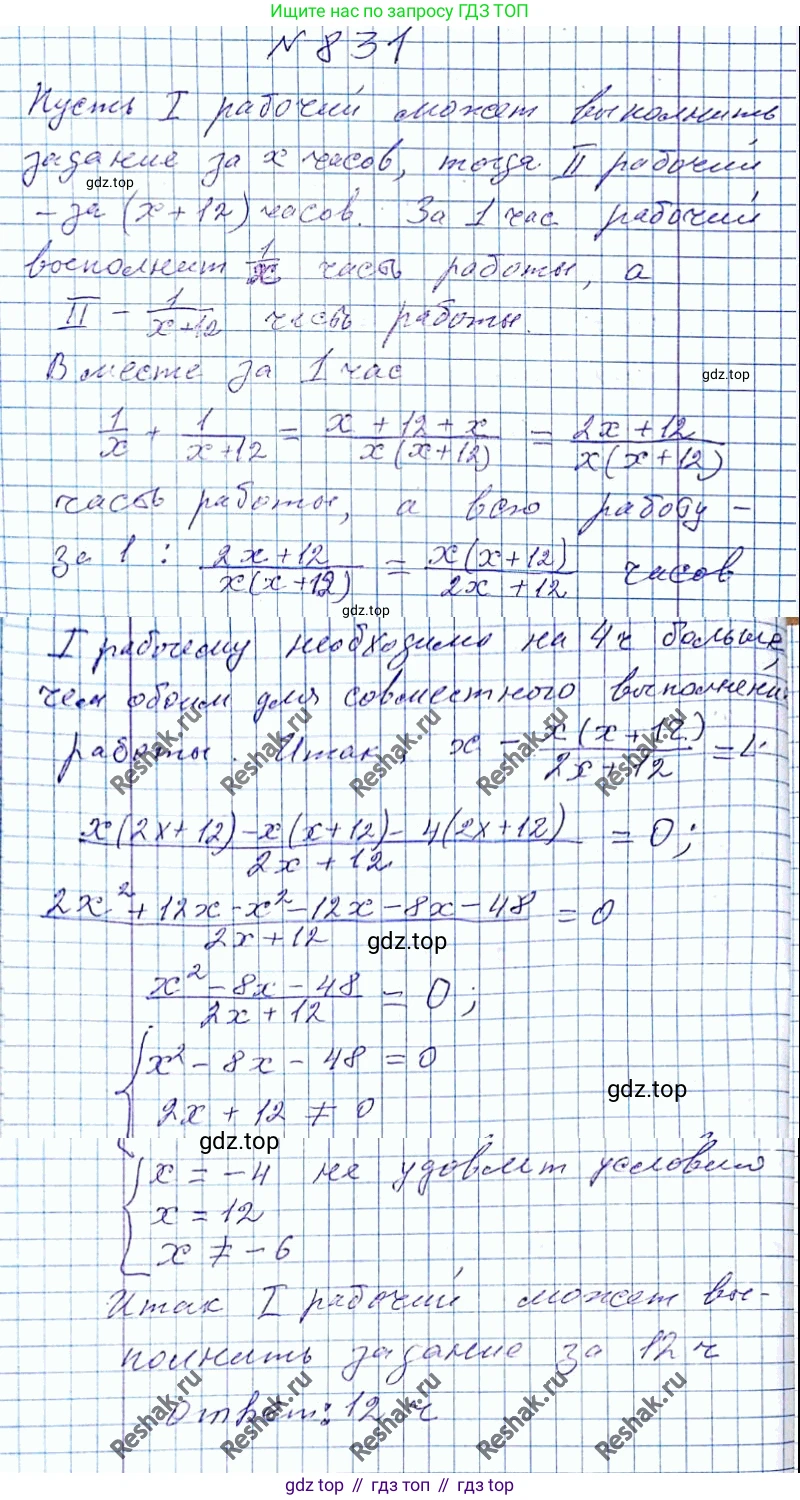 Ищите нас по запросу ГДЗ ТОП
№ 831
Пусть I рабочий может выполнить
задание за x часов, тогда II рабочий
gdz.top
– за (x + 12) часов. За 1 час рабочий
восполнит 1/x часть работы, а
II – 1/(x+12) часть работы.
Вместе за 1 час
gdz.top
1/x + 1/(x+12) = (x + 12 + x)/(x(x+12)) = (2x + 12)/(x(x+12))
часть работы, а всю работу –
за 1 : (2x+12)/(x(x+12)) = (x(x+12))/(2x + 12) часов
gdz.top
I рабочему необходимо на 4ч больше,
чем обоим для совместного выполнени
работы. Итак, x – (x(x+12))/(2x+12) = 4;
Reshak.ru Reshak.ru Reshak.ru Reshak.ru
(x(2x+12)–x(x+12)–4(2x+12))/(2x + 12) = 0;
(2x² + 12x – x² – 12x – 8x – 48)/(2x + 12) = 0
gdz.top
(x² – 8x – 48)/(2x + 12) = 0;
{ x² – 8x – 48 = 0
2x + 12 ≠ 0
gdz.top
gdz.top
{ x = –4 не удовлет условию
x = 12
x ≠ –6
Итак I рабочий может вы-
полнить задание за 12 ч
Ответ: 12 ч
Reshak.ru Reshak.ru Reshak.ru Reshak.ru
gdz top // гдз топ // гдз top